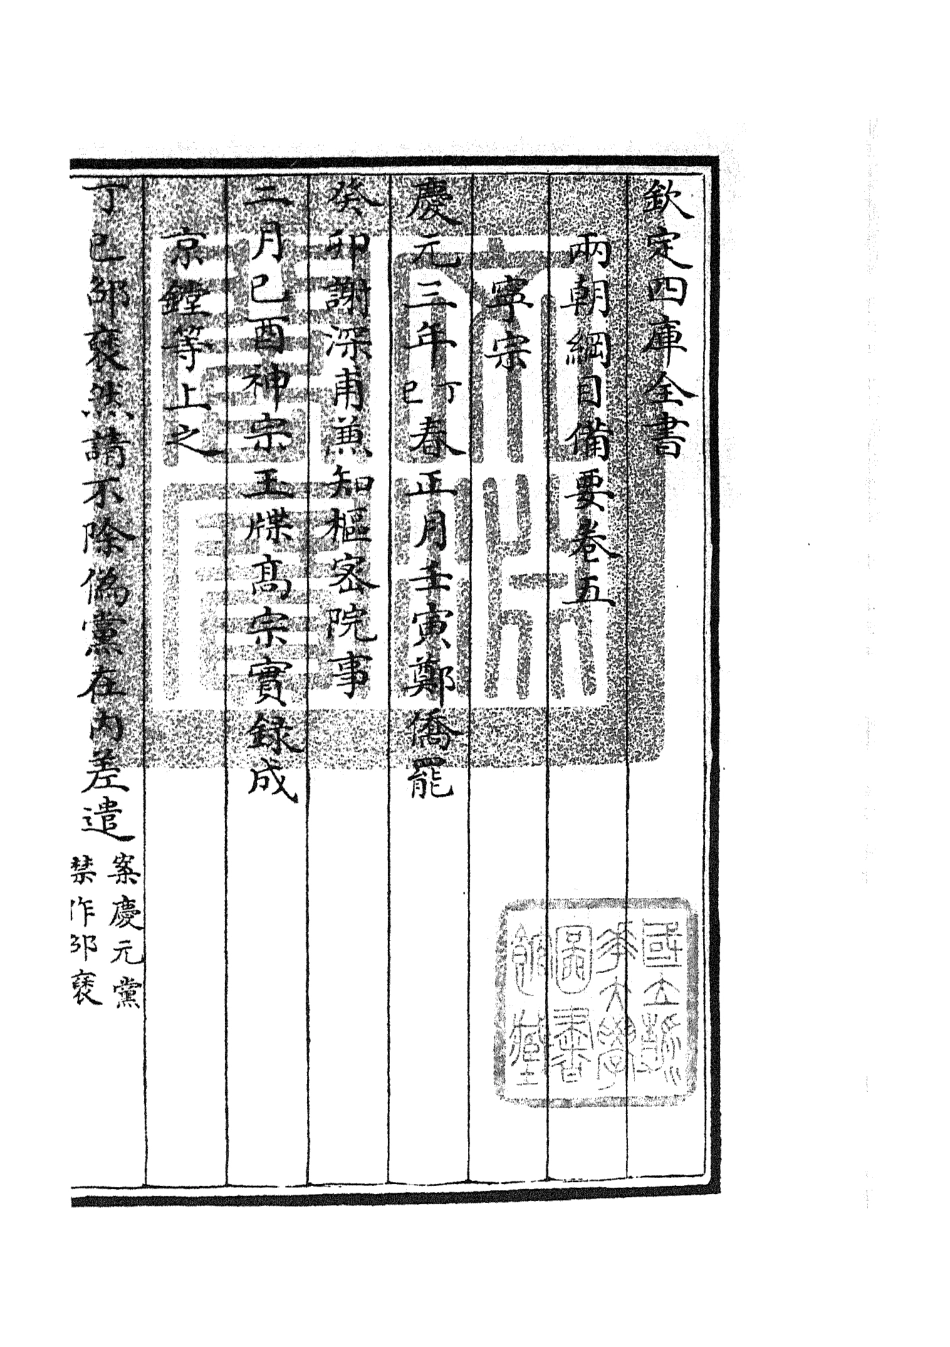 欽定四庫全書
兩朝綱目備要卷五
寧宗
慶元三年丁巳春正月壬寅鄭僑罷
癸卯謝深甫兼知樞密院事
二月己酉神宗玉牒髙宗實録成
京鏜等上之
丁巳邵襃然請不除偽黨在内差遣案慶元黨
禁作邵襃
國立浙
江大學
圖書
館藏